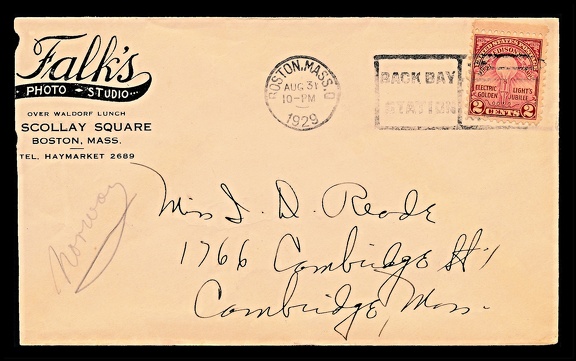 Falk's
PHOTO STUDIO
OVER WALDORF LUNCH
SCOLLAY SQUARE
BOSTON, MASS.
TEL, HAYMARKET 2689
BOSTON, MASS.
AUG 31
10-PM
1929
BACK BAY
STATION
UNITED STATES POSTAGE
EDISON'S
ELECTRIC LIGHT'S
GOLDEN JUBILEE
2 CENTS 2
Norway
Miss I. D. Reade
1766 Cambridge St
Cambridge, Mass.